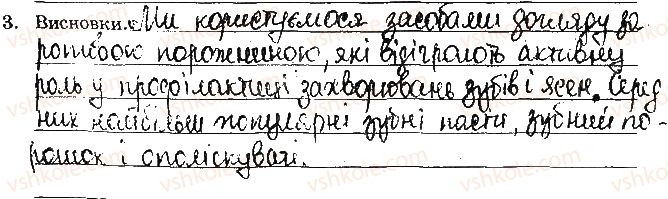 3. Висновки. Ми користуємося засобами догляду за
ротовою порожниною, які відіграють активну
роль у профілактиці захворювань зубів і ясен. Серед
них найбільш популярні зубні пасти, зубний по-
рошок і ополіскувачі.
vshkole.com